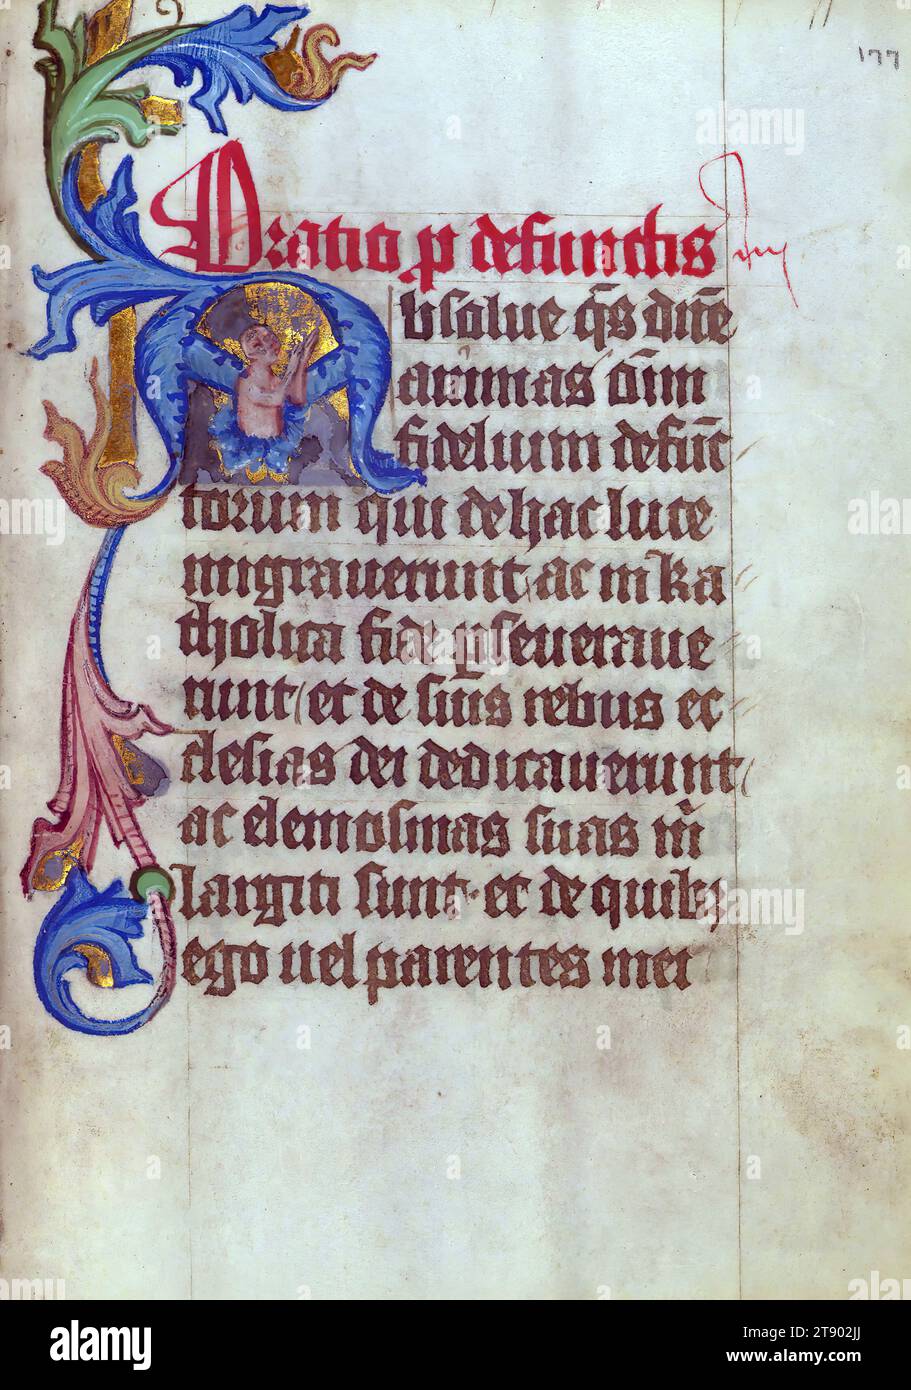 177
Oratio p defunctis
Absolue qs dne
animas oim
fidelium defunc
torum qui de hac luce
migrauerunt ac in ka
tholica fide pseueraue
runt et de suis rebus ec
clesias dei dedicauerunt
ac elemosinas suas in
largiti sunt et de quibz
ego uel parentes mei
alamy
Image ID: 2T902JJ
www.alamy.com